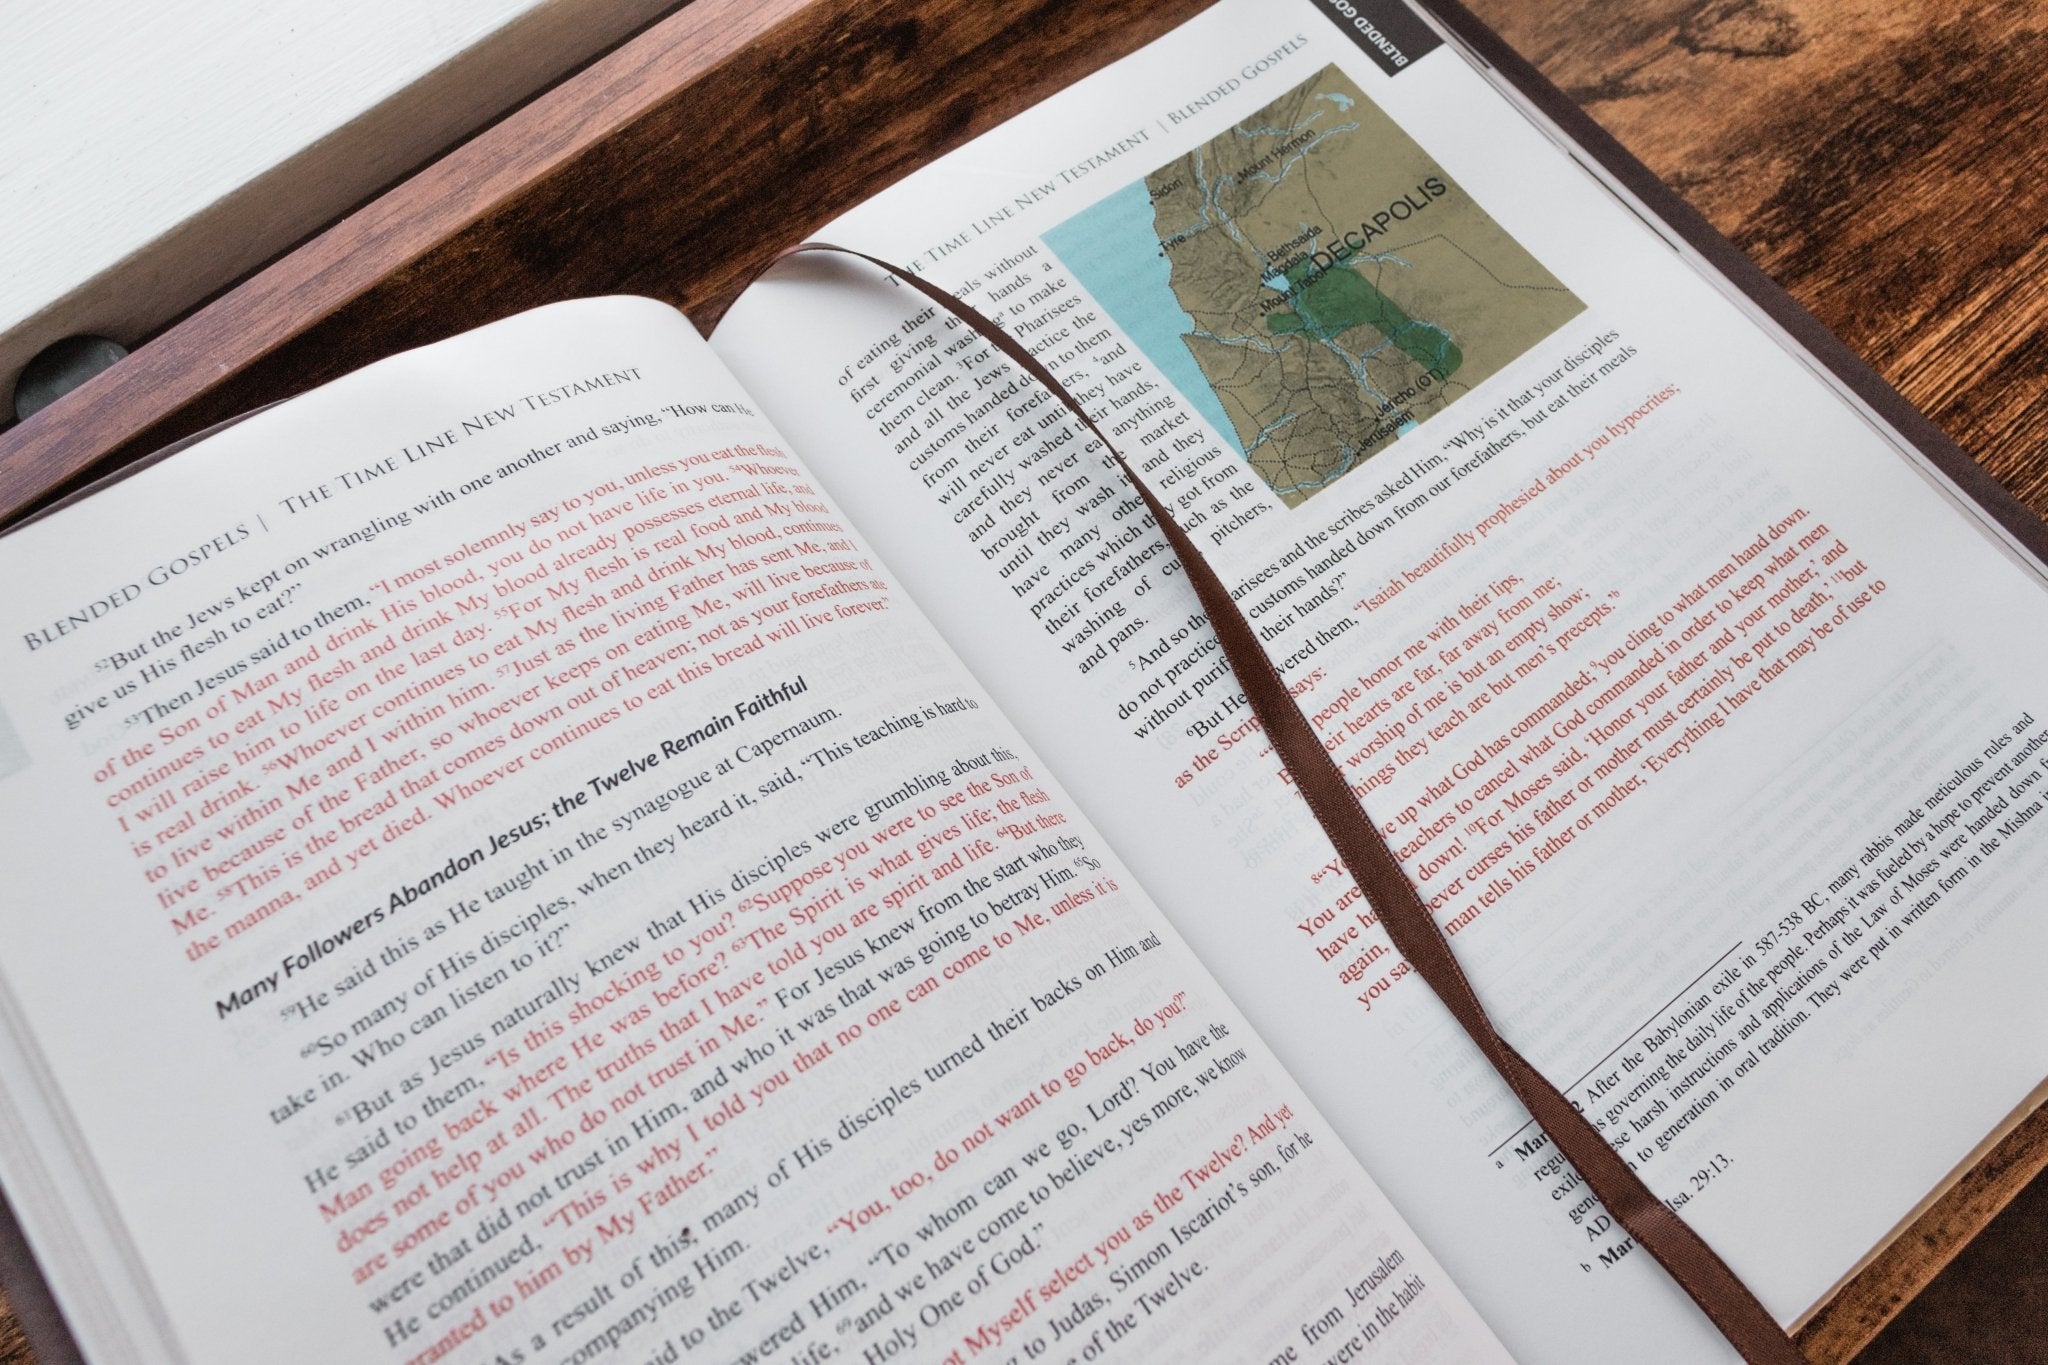 BLENDED GOSPELS | THE TIME LINE NEW TESTAMENT
⁵²But the Jews kept on wrangling with one another and saying, “How can He
give us His flesh to eat?”
⁵³Then Jesus said to them, “I most solemnly say to you, unless you eat the flesh
of the Son of Man and drink His blood, you do not have life in you. ⁵⁴Whoever
continues to eat My flesh and drink My blood already possesses eternal life, and
I will raise him to life on the last day. ⁵⁵For My flesh is real food and My blood
is real drink. ⁵⁶Whoever continues to eat My flesh and drink My blood, continues
to live within Me and I within him. ⁵⁷Just as the living Father has sent Me, and I
live because of the Father, so whoever keeps on eating Me, will live because of
Me. ⁵⁸This is the bread that comes down out of heaven; not as your forefathers ate
the manna, and yet died. Whoever continues to eat this bread will live forever.”
Many Followers Abandon Jesus; the Twelve Remain Faithful
⁵⁹He said this as He taught in the synagogue at Capernaum.
⁶⁰So many of His disciples, when they heard it, said, “This teaching is hard to
take in. Who can listen to it?”
⁶¹But as Jesus naturally knew that His disciples were grumbling about this,
He said to them, “Is this shocking to you? ⁶²Suppose you were to see the Son of
Man going back where He was before? ⁶³The Spirit is what gives life; the flesh
does not help at all. The truths that I have told you are spirit and life. ⁶⁴But there
are some of you who do not trust in Me.” For Jesus knew from the start who they
were that did not trust in Him, and who it was that was going to betray Him. ⁶⁵So
He continued, “This is why I told you that no one can come to Me, unless it is
granted to him by My Father.”
As a result of this, many of His disciples turned their backs on Him and
companying Him.
aid to the Twelve, “You, too, do not want to go back, do you?”
wered Him, “To whom can we go, Lord? You have the
life, ⁶⁹and we have come to believe, yes more, we know
Holy One of God.”
ot Myself select you as the Twelve? And yet
g to Judas, Simon Iscariot’s son, for he
e of the Twelve.
me from Jerusalem
were in the habit
THE TIME LINE NEW TESTAMENT | BLENDED GOSPELS
BLENDED GOS
of eating their meals without
first giving their hands a
ceremonial washingᵃ to make
them clean. ³For the Pharisees
and all the Jews practice the
customs handed down to them
from their forefathers, ⁴and
will never eat until they have
carefully washed their hands,
and they never eat anything
brought from the market
until they wash it; and they
have many other religious
practices which they got from
their forefathers, such as the
washing of cups, pitchers,
and pans.
Sidon
Mount Hermon
Tyre
Bethsaida
Magdala
DECAPOLIS
Mount Tabor
Jericho (OT)
Jerusalem
⁵And so the Pharisees and the scribes asked Him, “Why is it that your disciples
do not practice customs handed down from our forefathers, but eat their meals
without purif their hands?”
⁶But He answered them, “Isaiah beautifully prophesied about you hypocrites;
as the Scrip says:
people honor me with their lips,
B eir hearts are far, far away from me;
worship of me is but an empty show,
things they teach are but men’s precepts.’ᵇ
⁸“Yo ve up what God has commanded; ⁹you cling to what men hand down.
You are teachers to cancel what God commanded in order to keep what men
have ha down! ¹⁰For Moses said, ‘Honor your father and your mother,’ and
again, ever curses his father or mother must certainly be put to death,’ ¹¹but
you say man tells his father or mother, ‘Everything I have that may be of use to
a Mar 2 After the Babylonian exile in 587-538 BC, many rabbis made meticulous rules and
regu ns governing the daily life of the people. Perhaps it was fueled by a hope to prevent another
exile ese harsh instructions and applications of the Law of Moses were handed down f
gene n to generation in oral tradition. They were put in written form in the Mishna i
AD
b Mar Isa. 29:13.